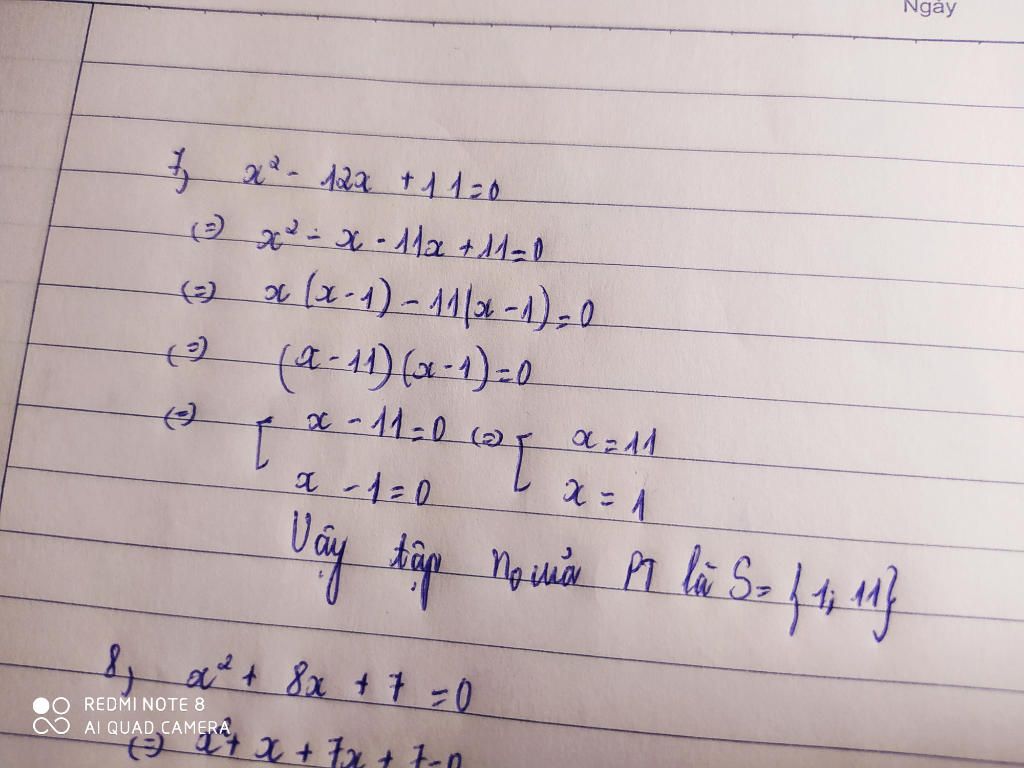 Ngày
7, x² - 12x + 11 = 0
(=) x² - x - 11x + 11 = 0
(=) x (x - 1) - 11(x - 1) = 0
(=) (x - 11)(x - 1) = 0
(=) [ x - 11 = 0 (=) [ x = 11
x - 1 = 0 x = 1
Vậy tập no của PT là S = {1; 11}
8, x² + 8x + 7 = 0
(=) x² + x + 7x + 7 = 0
REDMI NOTE 8
AI QUAD CAMERA